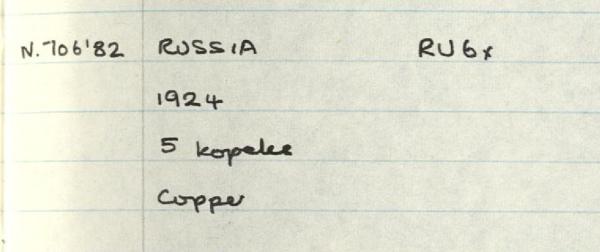 N.706'82 RUSSIA RU6x
1924
5 kopeks
Copper